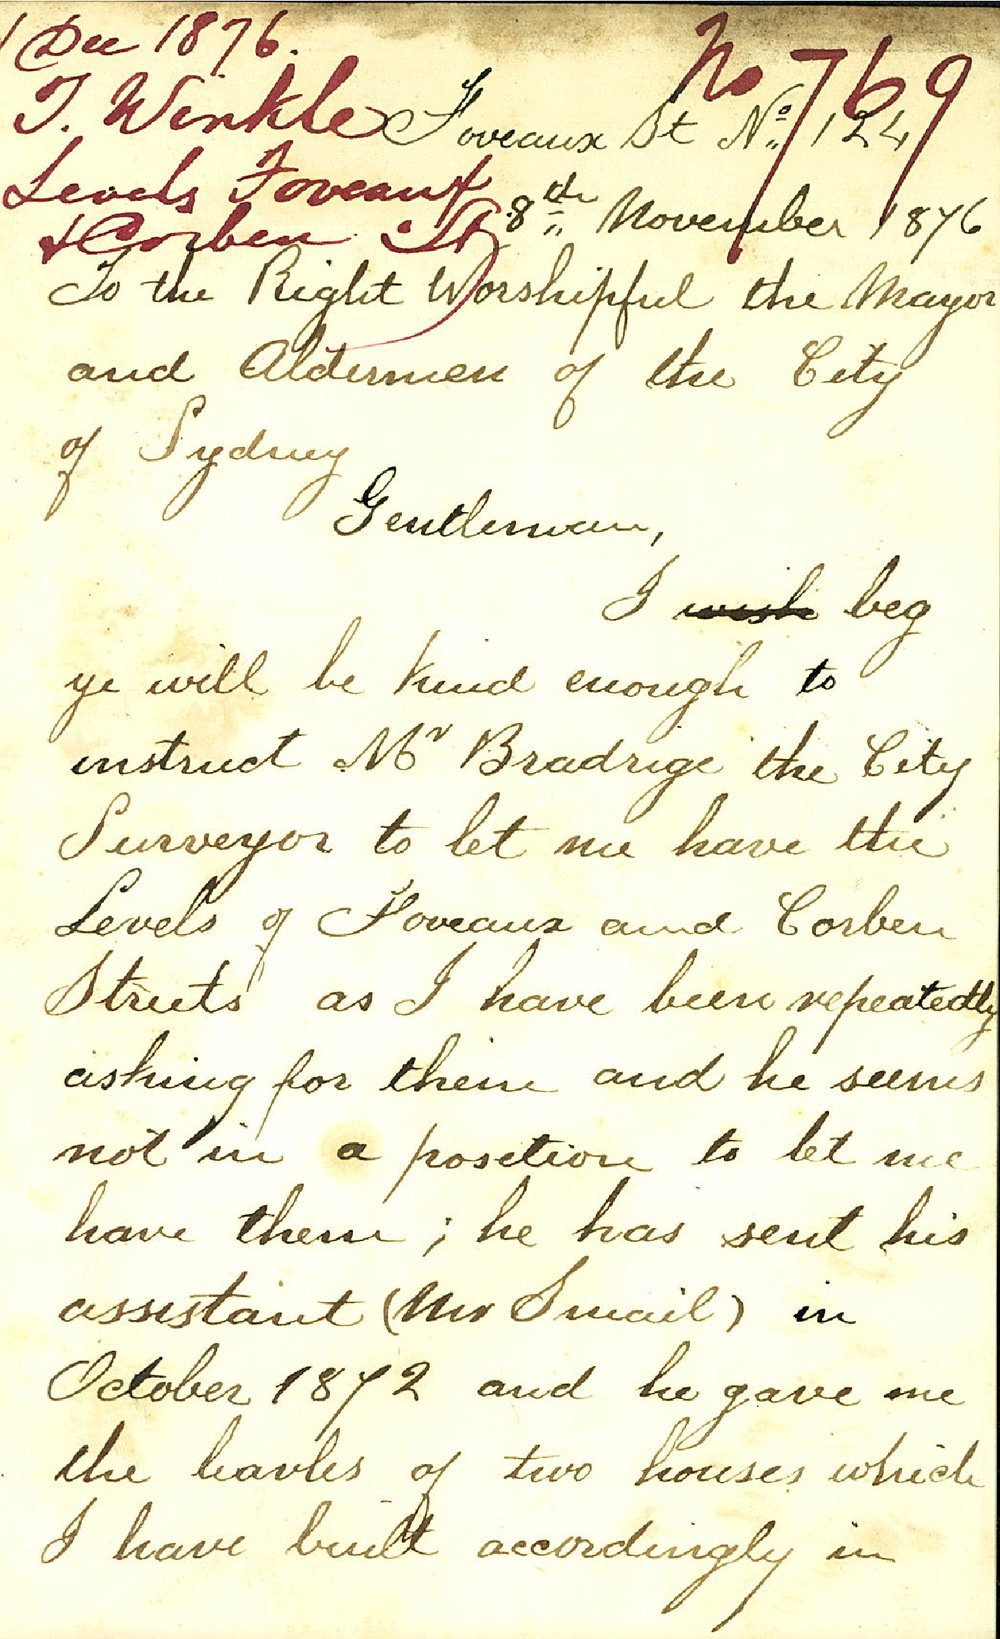 1 Dec 1876.
No 769
T. Winkle
Levels Foveaux
& Corben St
Foveaux St No. 124
8th November 1876
To the Right Worshipful the Mayor
and Aldermen of the City
of Sydney
Gentleman,
I wish beg
ye will be kind enough to
instruct Mr Bradrige the City
Surveyor to let me have the
Levels of Foveaux and Corben
Streets as I have been repeatedly
asking for them and he seems
not in a position to let me
have them; he has sent his
assistant (Mr Smail) in
October 1872 and he gave me
the leavles of two houses which
I have built accordingly in